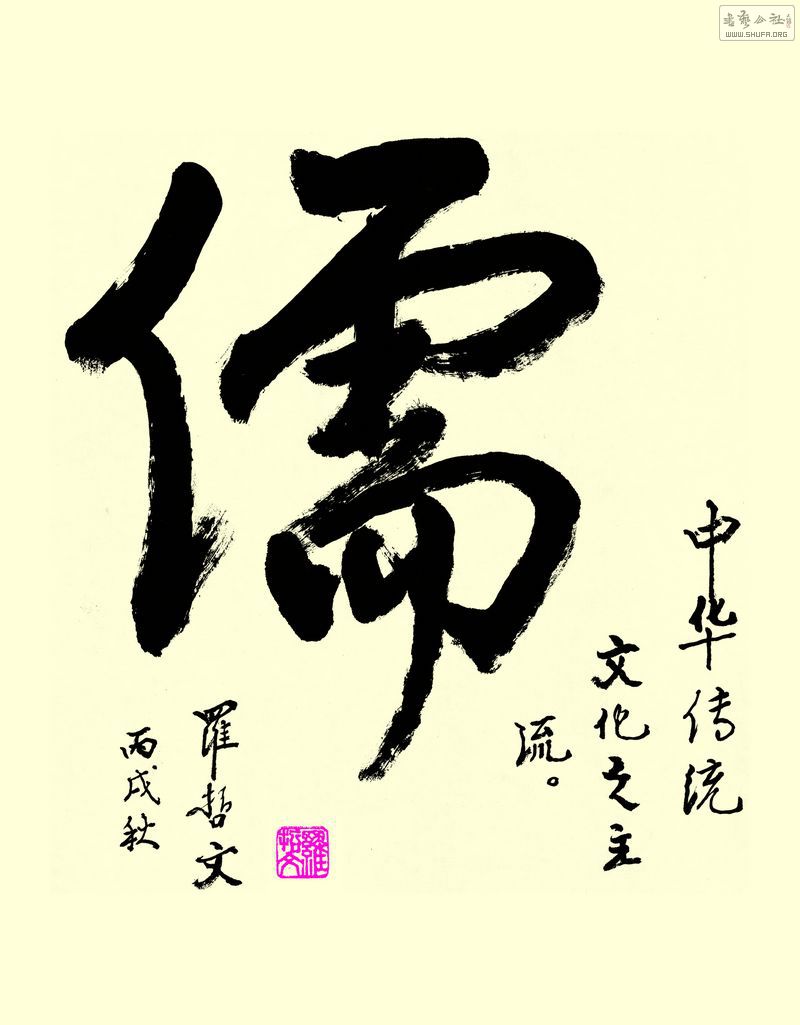 儒
中华传统
文化之主
流。
罗哲文
丙戌秋
書藝公社
WWW.SHUFA.ORG